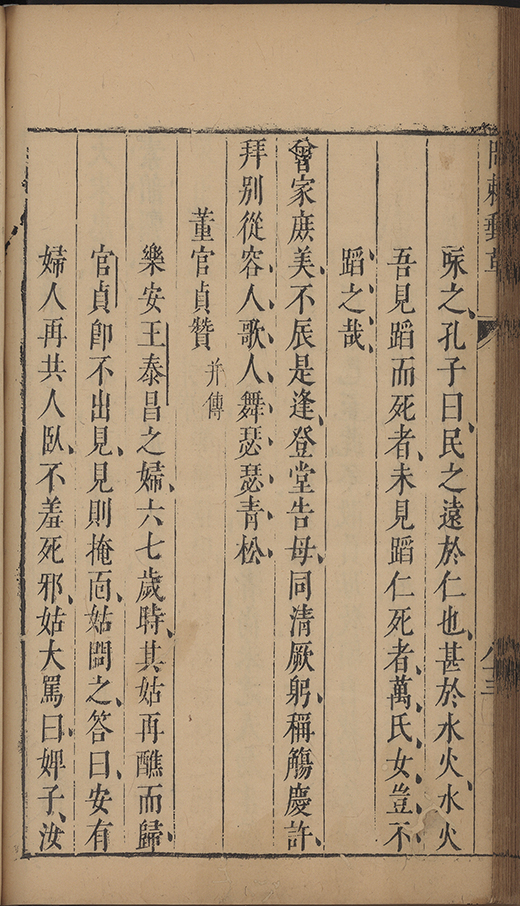 問棘郵草
之孔子曰民之遠於仁也甚於水火水火
吾見蹈而死者未見蹈仁死者萬氏女豈不
蹈之哉
曾家庻美不辰是逢登堂告母同清厥躬稱觴慶許
拜別從容人歌人舞瑟瑟青松
董官貞贊 并傳
樂安王泰昌之婦六七歲時其姑再醮而歸
官貞卽不出見見則掩靣姑問之答曰安有
婦人再共人臥不羞死邪姑大罵曰婢子汝